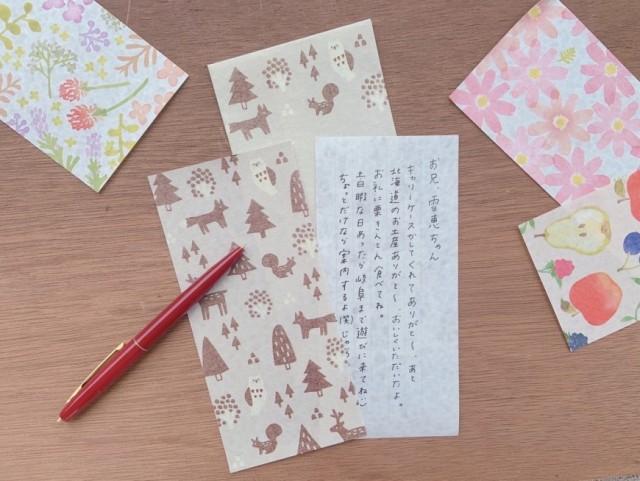 お兄、雪恵ちゃん
キャリーケースかしてくれてありがと〜、あと
北海道のお土産ありがと〜、おいしくいただいたよ。
お礼に栗きんとん食べてね。
土日暇な日あったら岐阜まで遊びに来てね
ちょっとだけなら案内するよ(笑)じゃーう。